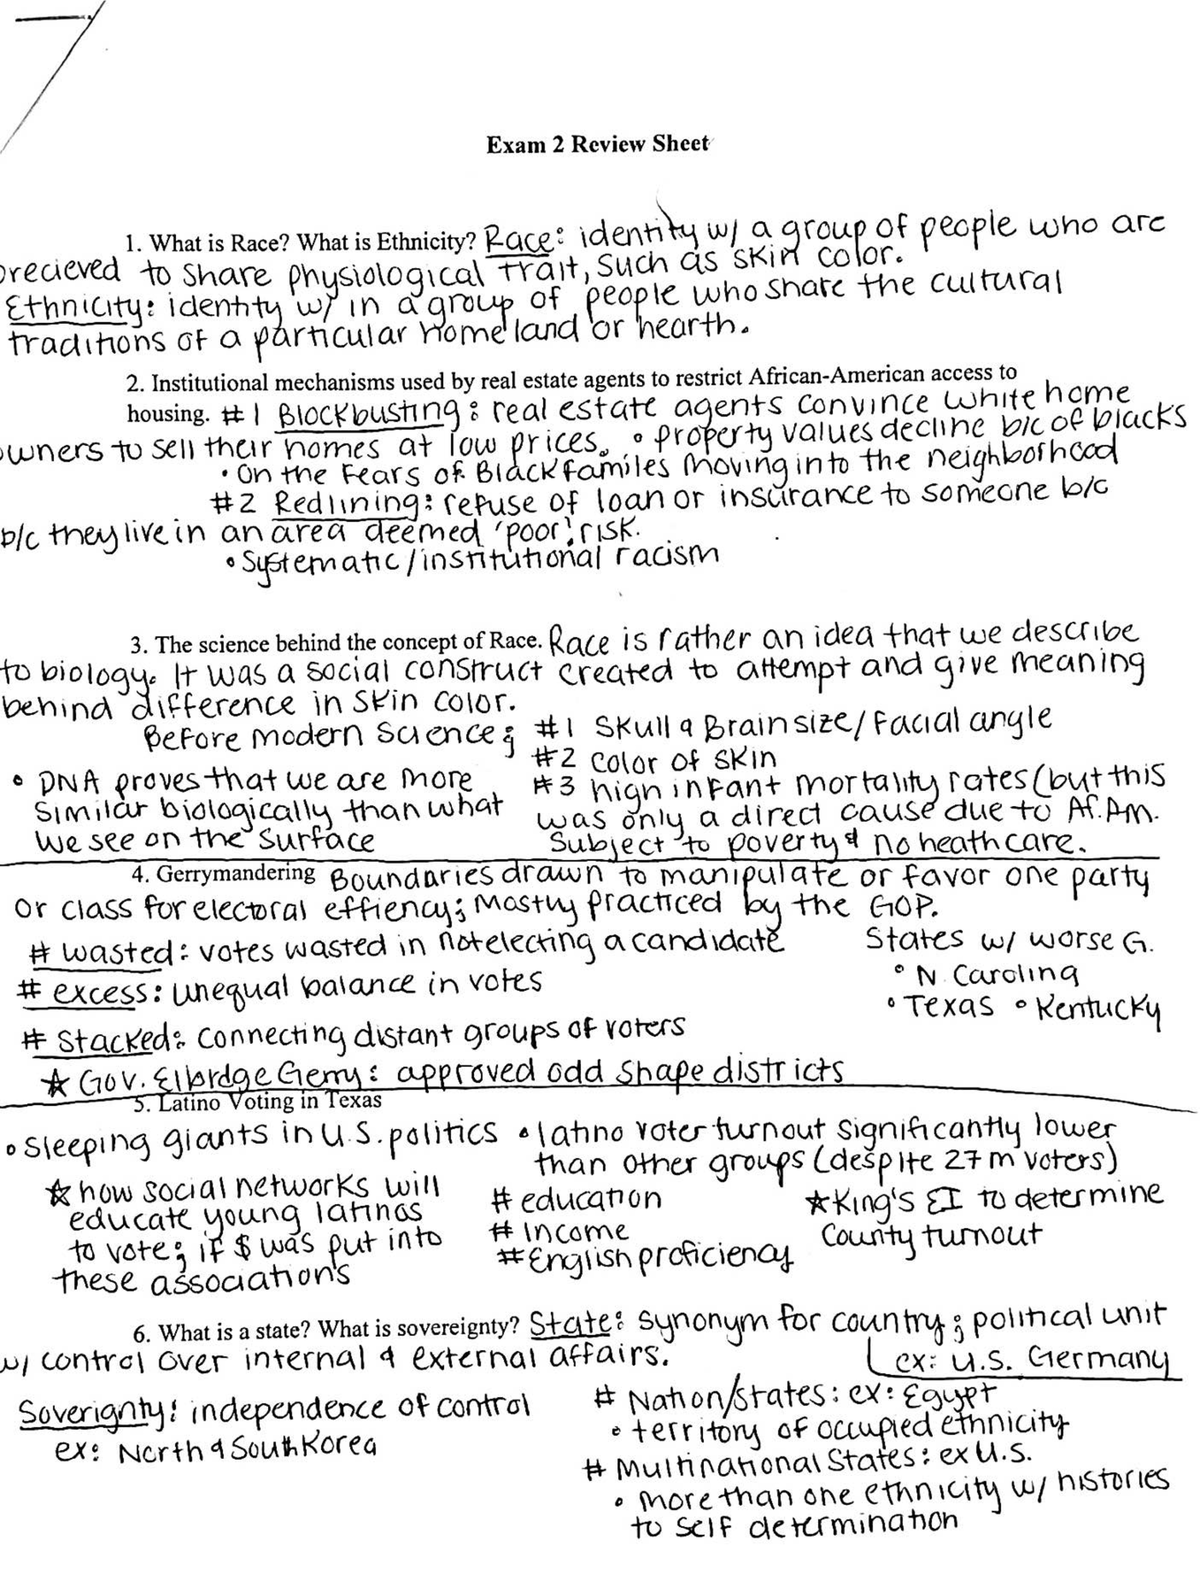 Exam 2 Review Sheet
1. What is Race? What is Ethnicity? Race: identity w/ a group of people who are
precieved to share physiological trait, such as skin color.
Ethnicity: identity w/ in a group of people who share the cultural
traditions of a particular homeland or hearth.
2. Institutional mechanisms used by real estate agents to restrict African-American access to
housing. #1 Blockbusting: real estate agents convince white home
owners to sell their homes at low prices. • property values decline b/c of blacks
• On the fears of Black familes moving into the neighborhood
#2 Redlining: refuse of loan or insurance to someone b/c
b/c they live in an area deemed 'poor' risk.
• Systematic/institutional racism
3. The science behind the concept of Race. Race is rather an idea that we describe
to biology. It was a social construct created to attempt and give meaning
behind difference in skin color.
Before modern science; #1 Skull & Brain size/facial angle
#2 color of skin
• DNA proves that we are more #3 high infant mortality rates (but this
similar biologically than what was only a direct cause due to Af. Am.
we see on the surface Subject to poverty & no heath care.
4. Gerrymandering Boundaries drawn to manipulate or favor one party
or class for electoral effiency; mostly practiced by the GOP.
# wasted: votes wasted in not electing a candidate States w/ worse G.
• N. Carolina
# excess: unequal balance in votes
• Texas • Kentucky
# Stacked: connecting distant groups of voters
☆ Gov. Elbrdge Gerry: approved odd shape districts
5. Latino Voting in Texas
• sleeping giants in U.S. politics • latino voter turnout significantly lower
than other groups (despite 27m voters)
☆ how social networks will # education ★King's EI to determine
educate young latinos # Income County turnout
to vote; if $ was put into # English proficiency
these associations
6. What is a state? What is sovereignty? State: synonym for country; political unit
w/ control over internal & external affairs. ex: U.S. Germany
Soverignty: independence of control # Nation/states: ex: Egypt
ex: North & South Korea • territory of occupied ethnicity
# Multinational States: ex U.S.
• more than one ethnicity w/ histories
to self determination